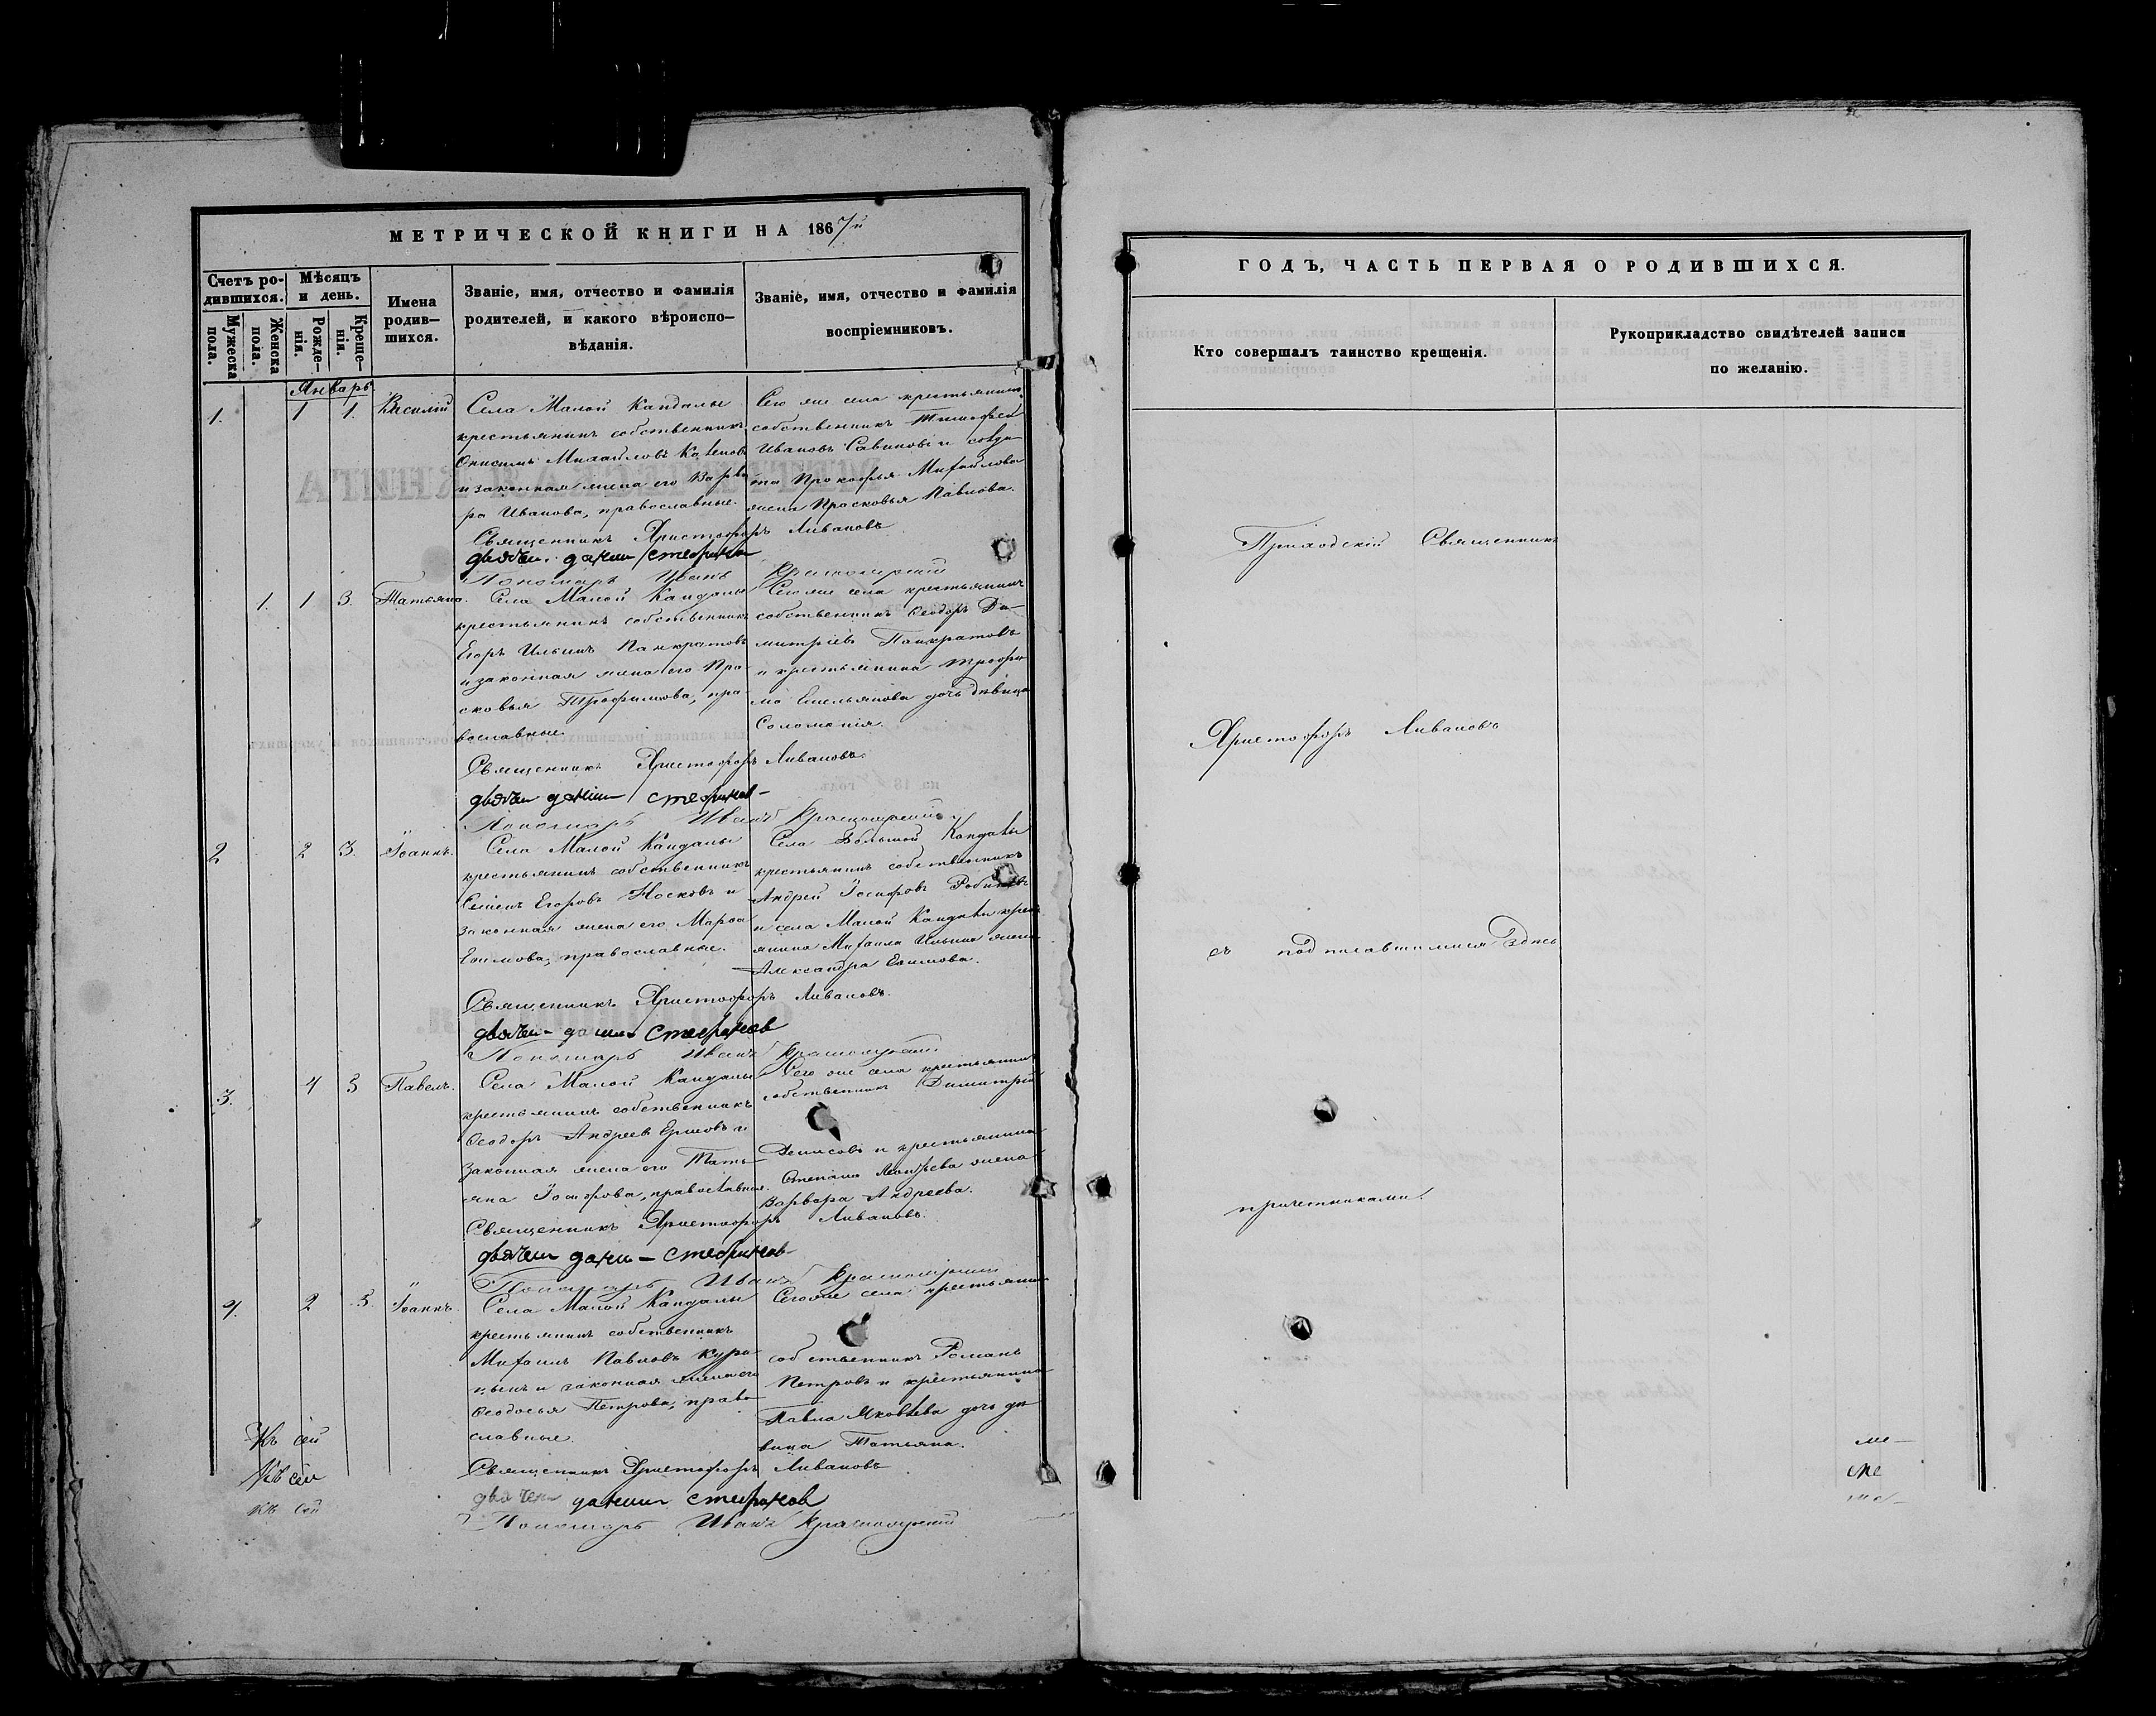 МЕТРИЧЕСКОЙ КНИГИ НА 1867й
Счетъ ро-
дившихся.
Мѣсяцъ
и день.
Мужеска
пола.
Женска
пола.
Рожде-
нія.
Креще-
нія.
Имена
родив-
шихся.
Званіе, имя, отчество и фамилія
родителей, и какого вѣроиспо-
вѣданія.
Званіе, имя, отчество и фамилія
воспріемниковъ.
Январь
1. 1 1. Василій
Села Малой Кандалы
крестьянинъ собственникъ
Онисимъ Михайловъ
и законная жена его Варва
ра Иванова, православные.
Сего же села крестьянинъ
собственникъ Тимофей
Ивановъ Савиновъ и солда
та Прокофья Михайлова
жена Прасковья Павлова.
Священникъ Христофоръ Ливановъ
Пономарь Иванъ
1. 1 3. Татьяна.
Села Малой Кандалы
крестьянинъ собственникъ
Егоръ Ильинъ Панкратовъ
и законная жена его Пра-
сковья Трофимова, пра-
вославные.
Сего же села крестьянинъ
собственникъ Ѳеодоръ Ди-
митріевъ Панкратовъ
и крестьянина Трофи
ма Емельянова дочь дѣвица
Соломонія.
Священникъ Христофоръ Ливановъ.
Пономарь Иванъ
2 2 3. Іоаннъ.
Села Малой Кандалы
крестьянинъ собственникъ
Семенъ Егоровъ Носковъ и
законная жена его Марѳа
Ефимова, православные.
Села Большой Кандалы
крестьянинъ собственникъ
Андрей Іосифовъ
и села Малой Кандалы
янина Михаила Ильина жена
Александра Ефимова.
Священникъ Христофоръ Ливановъ.
Пономарь Иванъ
3. 4 5 Павелъ.
Села Малой Кандалы
крестьянинъ собственникъ
Ѳеодоръ Андреевъ Ершовъ и
законная жена его Тать-
яна Іосифова, православные.
Сего же села крестьянинъ
собственникъ Димитрій
Денисовъ и крестьянина
Степана Леонтьева жена
Варвара Андреева.
Священникъ Христофоръ Ливановъ.
Пономарь Иванъ
4. 2 5. Іоаннъ.
Села Малой Кандалы
крестьянинъ собственникъ
Михаилъ Павловъ Кури
цынъ и законная жена его
Ѳеодосья Петрова, право
славные.
Сего же села крестьянинъ
собственникъ Романъ
Петровъ и крестьянина
Павла Яковлева дочь дѣ
вица Татьяна.
Священникъ Христофоръ Ливановъ
Пономарь Иванъ
Къ сей
Къ сей
Къ сей
ГОДЪ, ЧАСТЬ ПЕРВАЯ О РОДИВШИХСЯ.
Кто совершалъ таинство крещенія.
Рукоприкладство свидѣтелей записи
по желанію.
Приходскій Священникъ
Христофоръ Ливановъ
съ подписавшимися здѣсь
причетниками.
ме-
ме
ме-